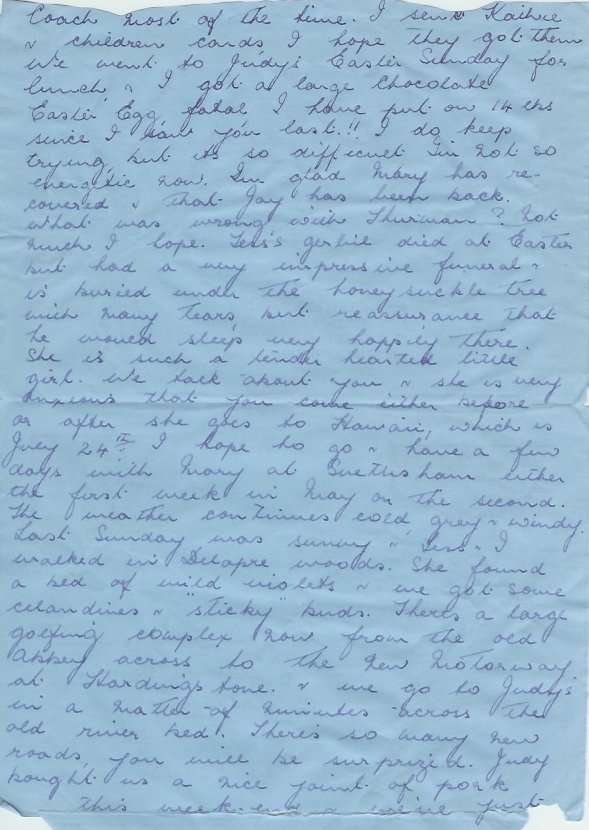 Coach most of the time. I sent Kathie
& children cards I hope they got them
We went to Judy's Easter Sunday for
lunch & I got a large Chocolate
Easter Egg, fatal I have put on 14 lbs
since I saw you last.!! I do keep
trying, but its so difficult I'm not so
energetic now. I'm glad Mary has re-
covered & that Jay has been back.
What was wrong with Thurman? Not
much I hope. Tess's gerbil died at Easter
but had a very impressive funeral &
is buried under the honeysuckle tree
with many tears but reassurance that
he would sleep very happily there.
She is such a tender hearted little
girl. We talk about you & she is very
anxious that you come either before
or after she goes to Hawaii, which is
July 24th. I hope to go & have a few
days with Mary at either
the first week in May or the second.
The weather continues cold, grey & windy.
Last Sunday was sunny & Tess & I
walked in Delapre woods. She found
a bed of wild violets & we got some
celandines & "sticky" buds. There's a large
golfing complex now from the old
Abbey across to the New Motorway
at Hardingstone. & we go to Judy's
in a matter of minutes across the
old river bed. There's so many new
roads, you will be surprized. Judy
bought us a nice joint of pork
this week-end & we've just